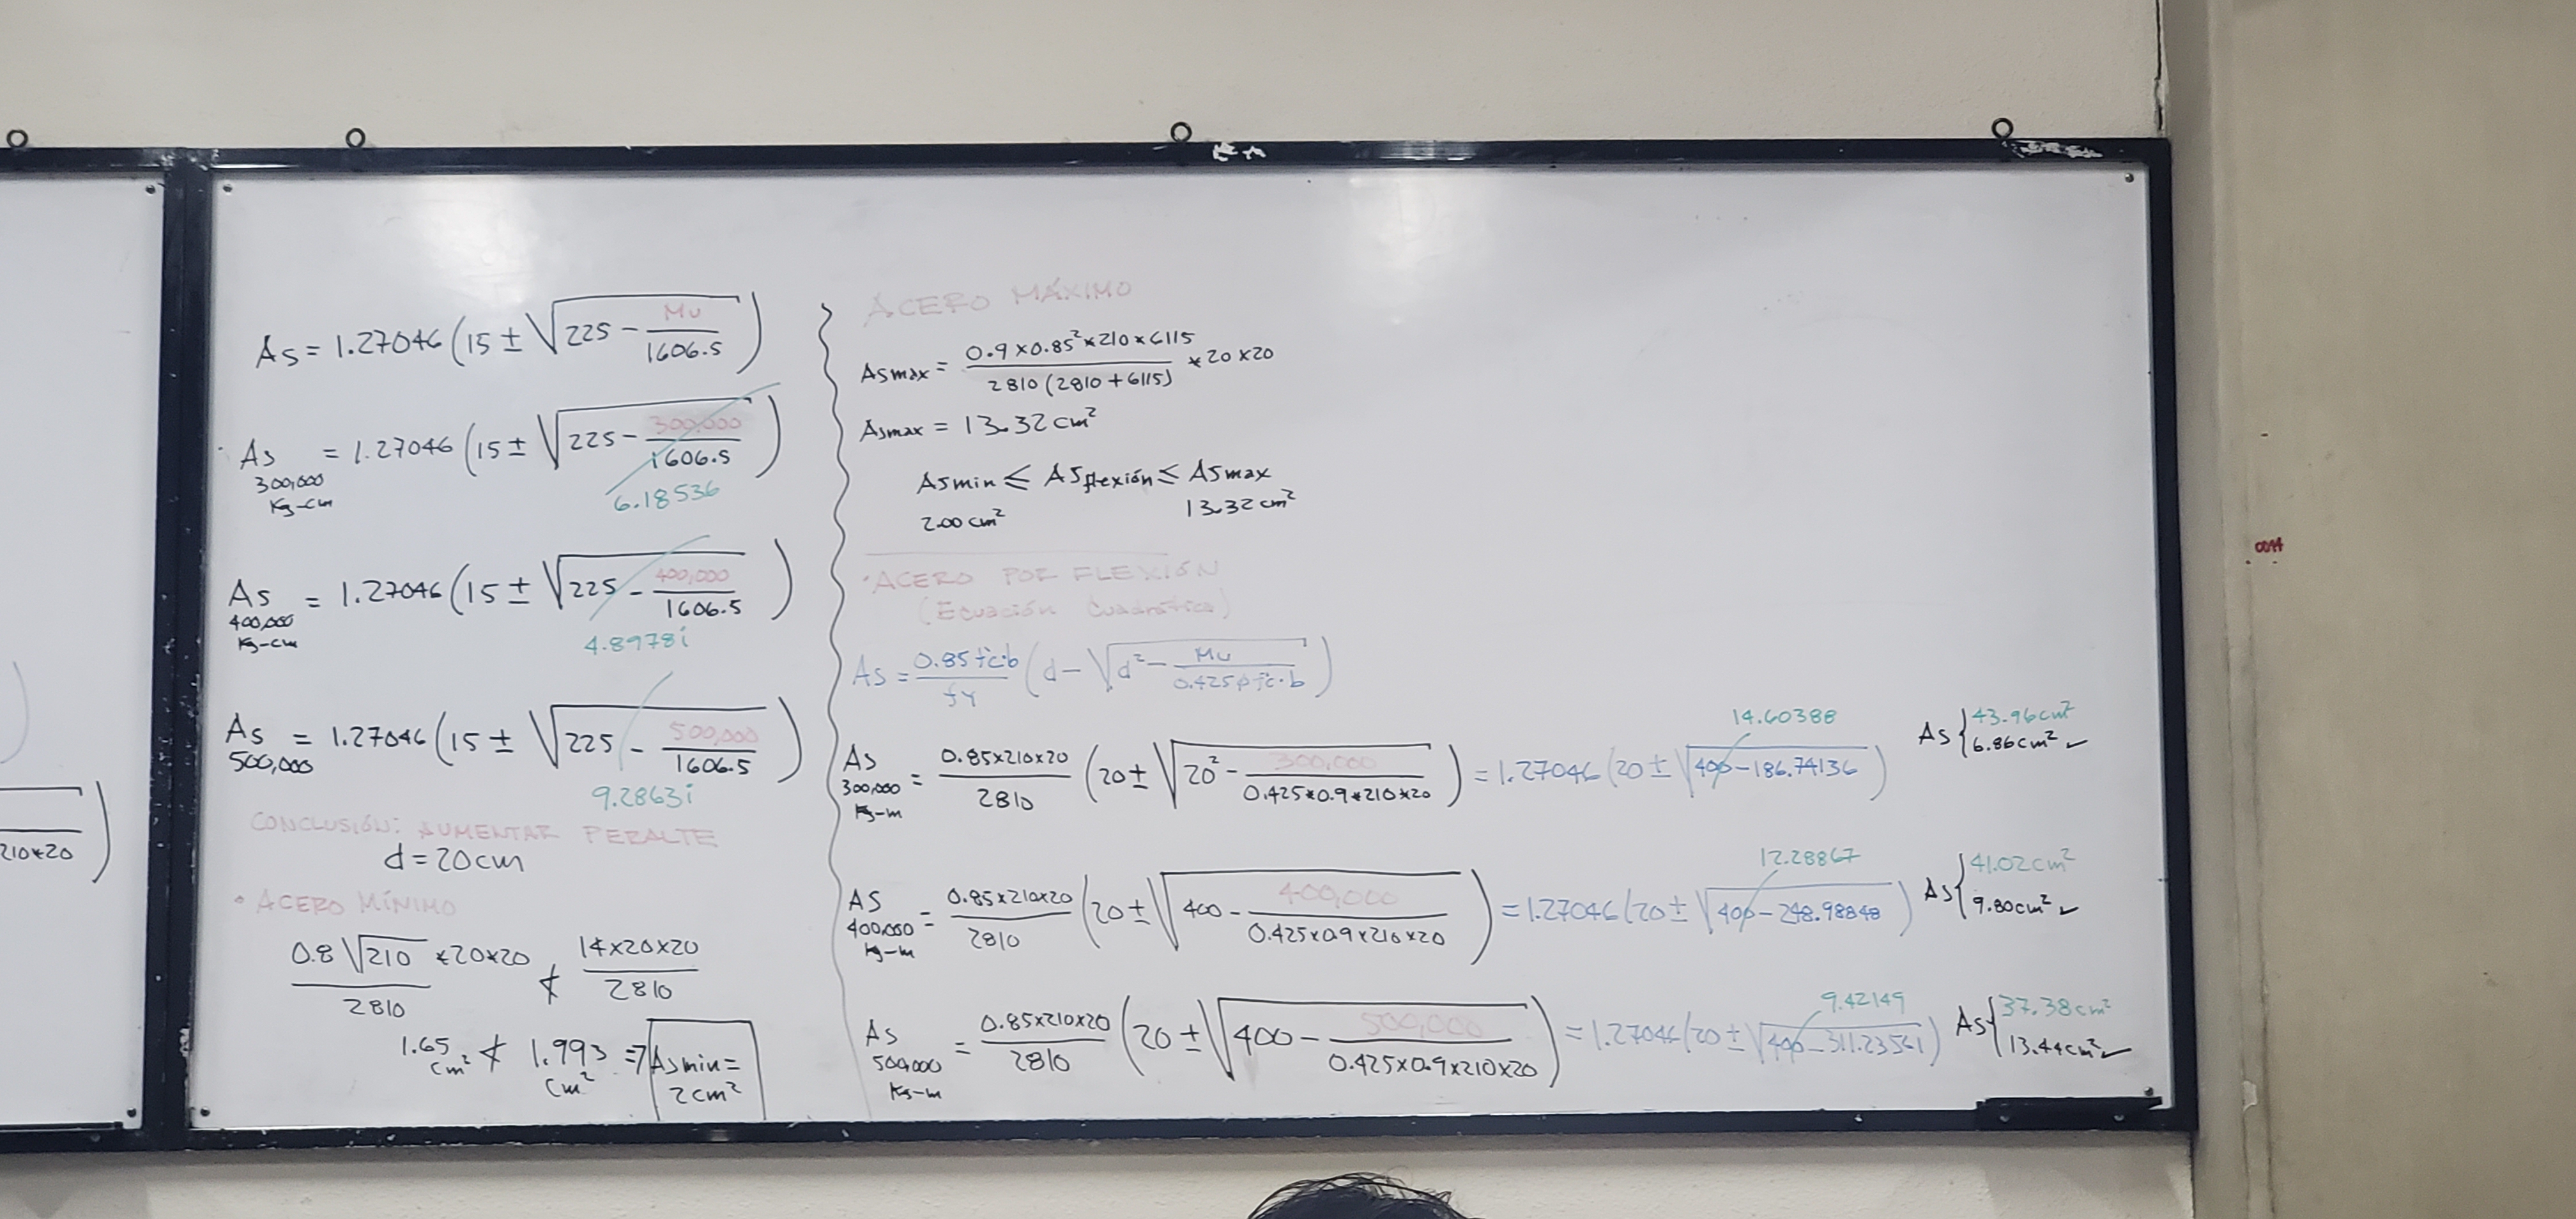 210*20
As = 1.27046 (15 ± √(225 - Mu/1606.5))
As 300,000 Kg-cm = 1.27046 (15 ± √(225 - 300,000/1606.5))
6.18536
As 400,000 Kg-cm = 1.27046 (15 ± √(225 - 400,000/1606.5))
4.8978i
As 500,000 = 1.27046 (15 ± √(225 - 500,000/1606.5))
9.2863i
CONCLUSIÓN: AUMENTAR PERALTE
d = 20cm
• ACERO MÍNIMO
0.8√210/2810 *20*20 ≮ 14x20x20/2810
1.65 cm² ≮ 1.993 cm² => Asmin = 2cm²
ACERO MÁXIMO
Asmax = 0.9x0.85²*210*6115/2810(2810+6115) *20x20
Asmax = 13.32cm²
Asmin ≤ ASflexión ≤ ASmax
2.00cm² 13.32cm²
• ACERO POR FLEXIÓN
(Ecuación Cuadrática)
As = 0.85f'c·b/fy (d - √(d² - Mu/0.425φf'c·b))
As 300,000 Kg-m = 0.85x210x20/2810 (20 ± √(20² - 300,000/0.425*0.9*210*20)) = 1.27046(20 ± √(400-186.74136)) As { 43.96cm² 6.86cm² ✓
14.60388
AS 400,000 Kg-m = 0.85x210x20/2810 (20 ± √(400 - 400,000/0.425x0.9x210x20)) = 1.27046(20 ± √(400-248.98848)) As { 41.02cm² 9.80cm² ✓
12.28867
As 500,000 Kg-m = 0.85x210x20/2810 (20 ± √(400 - 500,000/0.425x0.9x210x20)) = 1.27046(20 ± √(400-311.23561)) As { 37.38cm² 13.44cm² ✓
9.42149